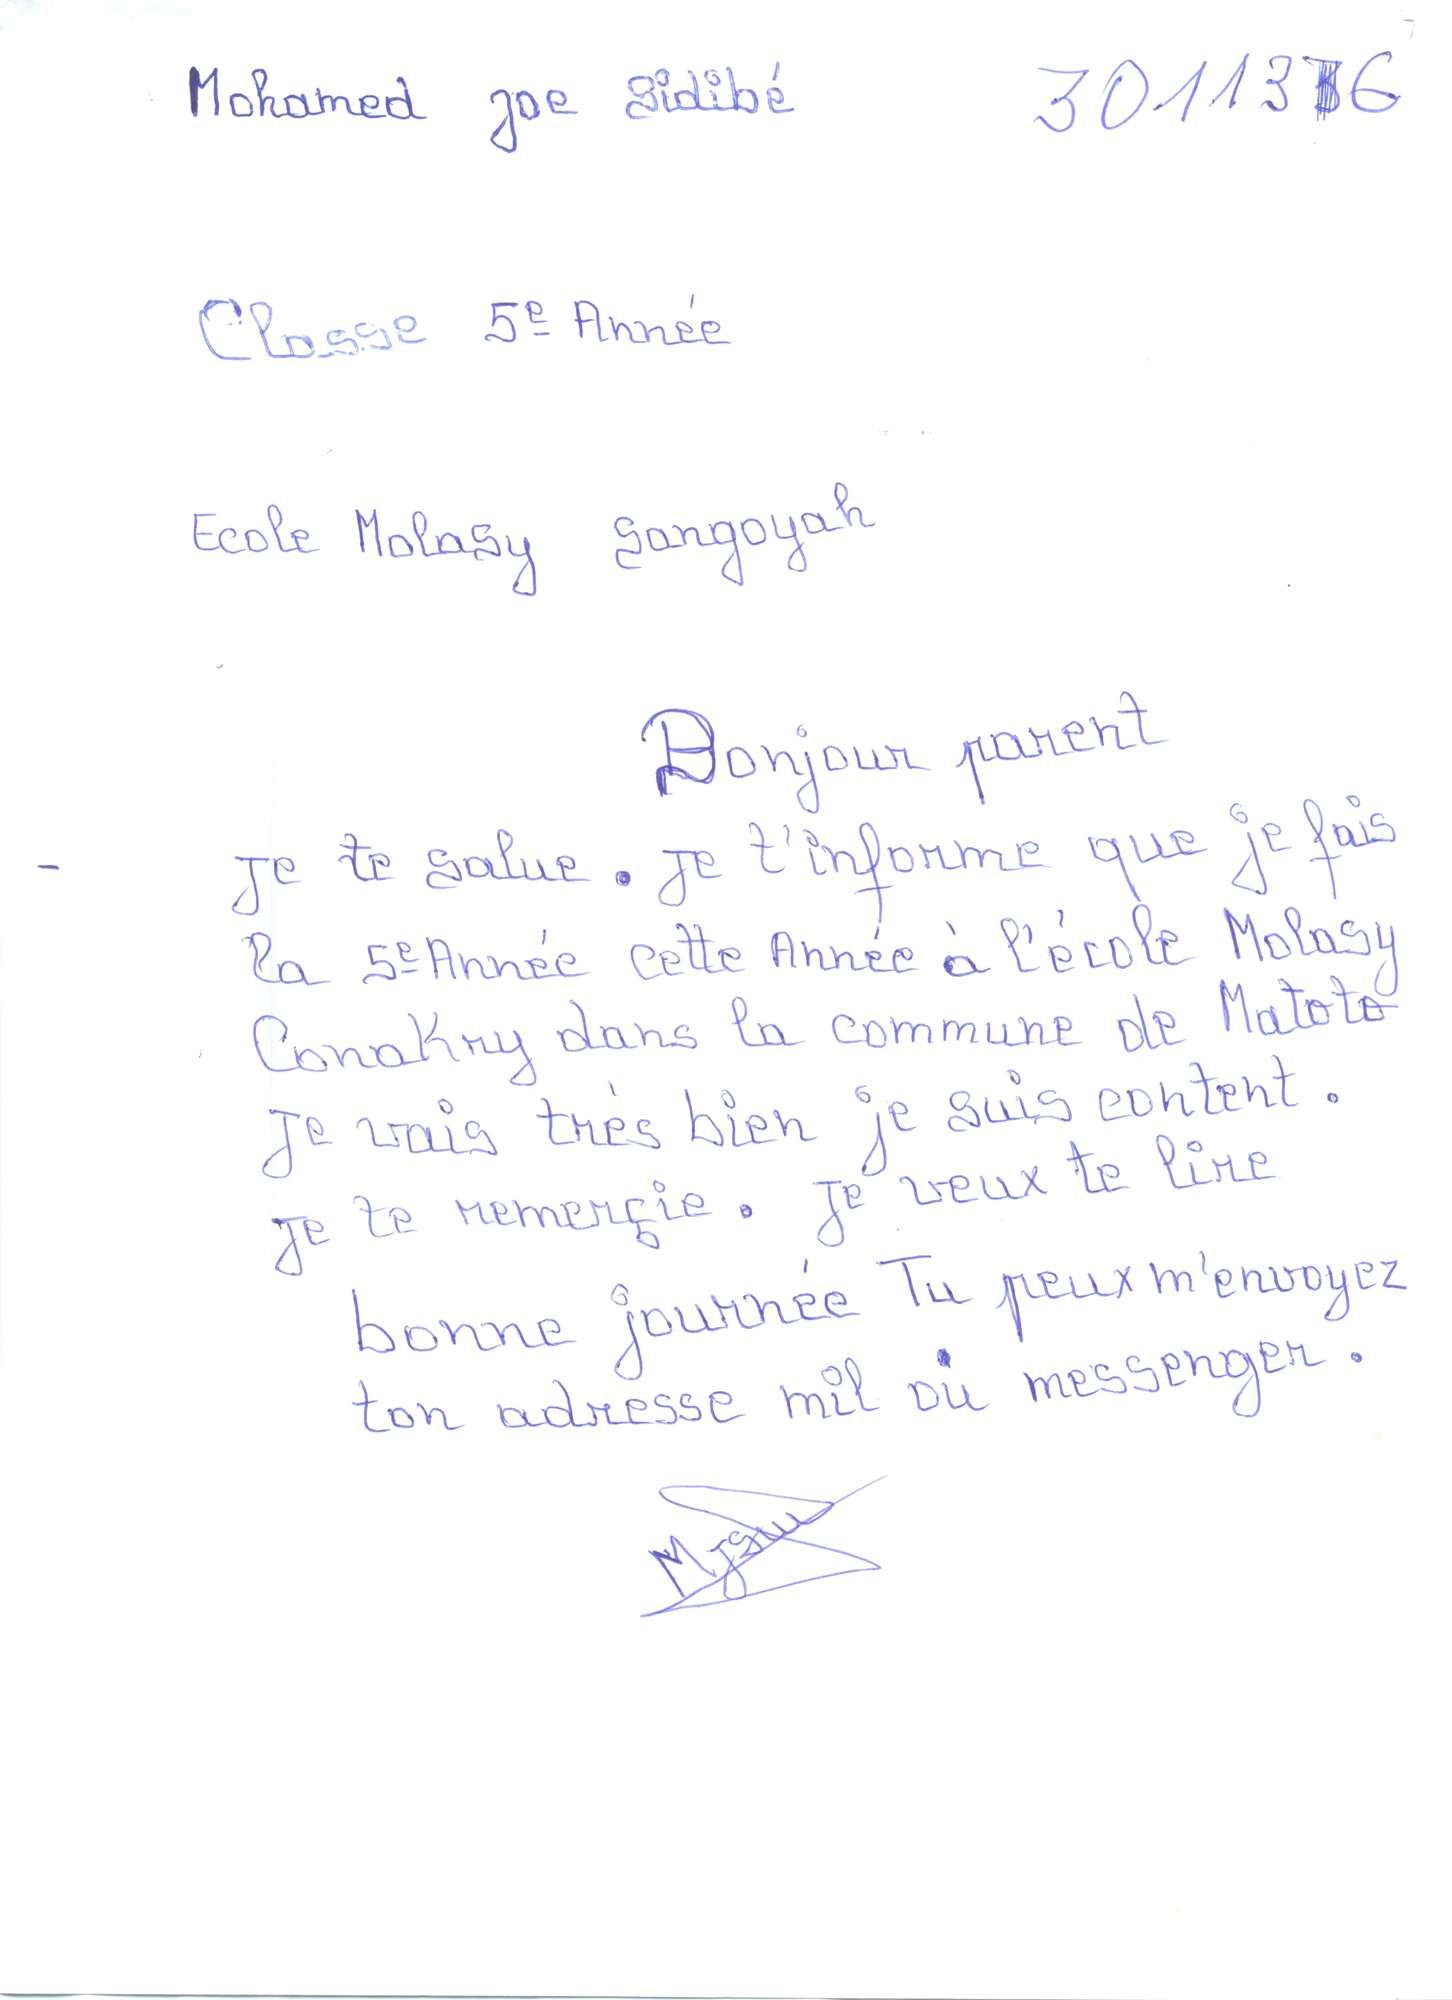 Mohamed joe Sidibé
Classe 5e Année
Ecole Molasy Sangoyah
Bonjour parent
- Je te salue. Je t'informe que je fais
la 5e Année cette Année à l'école Molasy
Conakry dans la commune de Matoto
Je vais très bien je suis content.
Je te remerçie. Je veux te lire
bonne journée Tu peux m'envoyez
ton adresse mil où messenger.